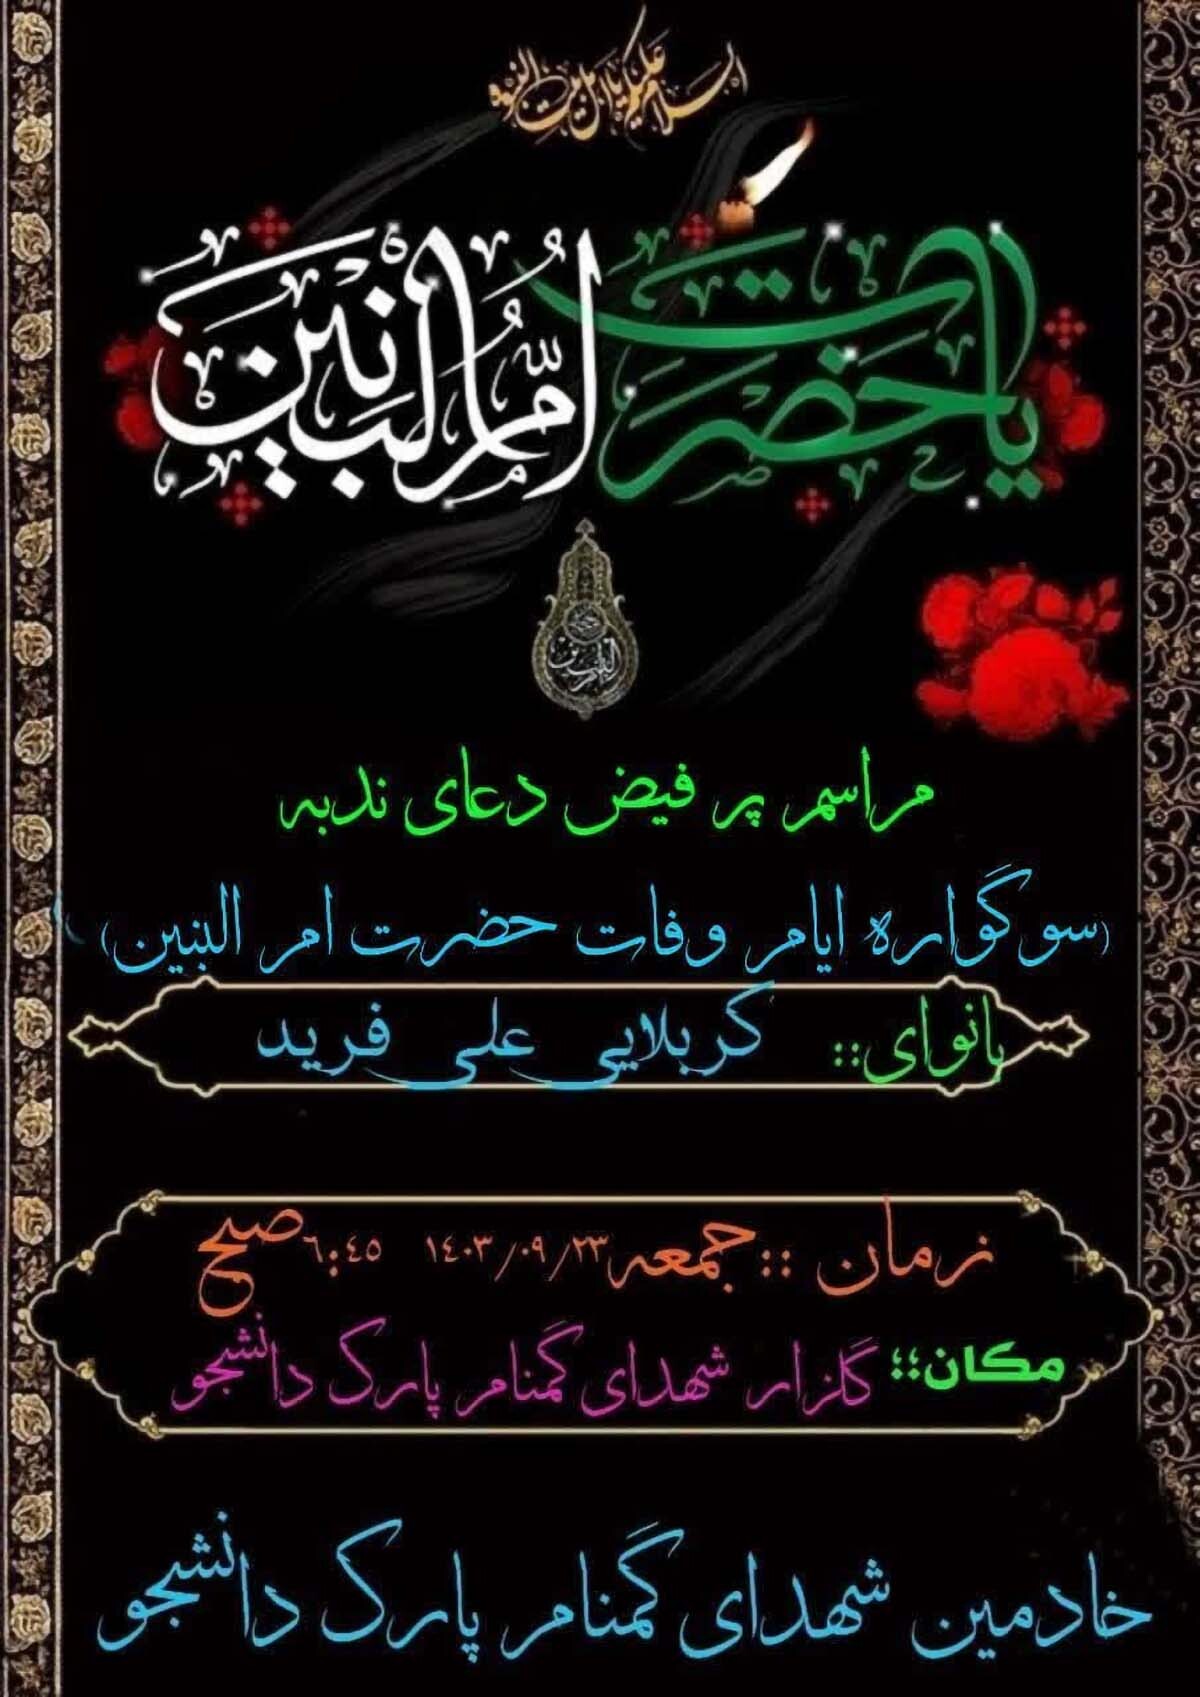 السلام علیکم یا اهل بیت النبوه
یا حضرت ام البنین
مراسم پر فیض دعای ندبه
(سوگواره ایام وفات حضرت ام البنین)
بانوای:: کربلایی علی فرید
زمان :: جمعه ۱۴۰۳/۰۹/۲۳ ۶:۴۵ صبح
مکان؛؛ گلزار شهدای گمنام پارک دانشجو
خادمین شهدای گمنام پارک دانشجو